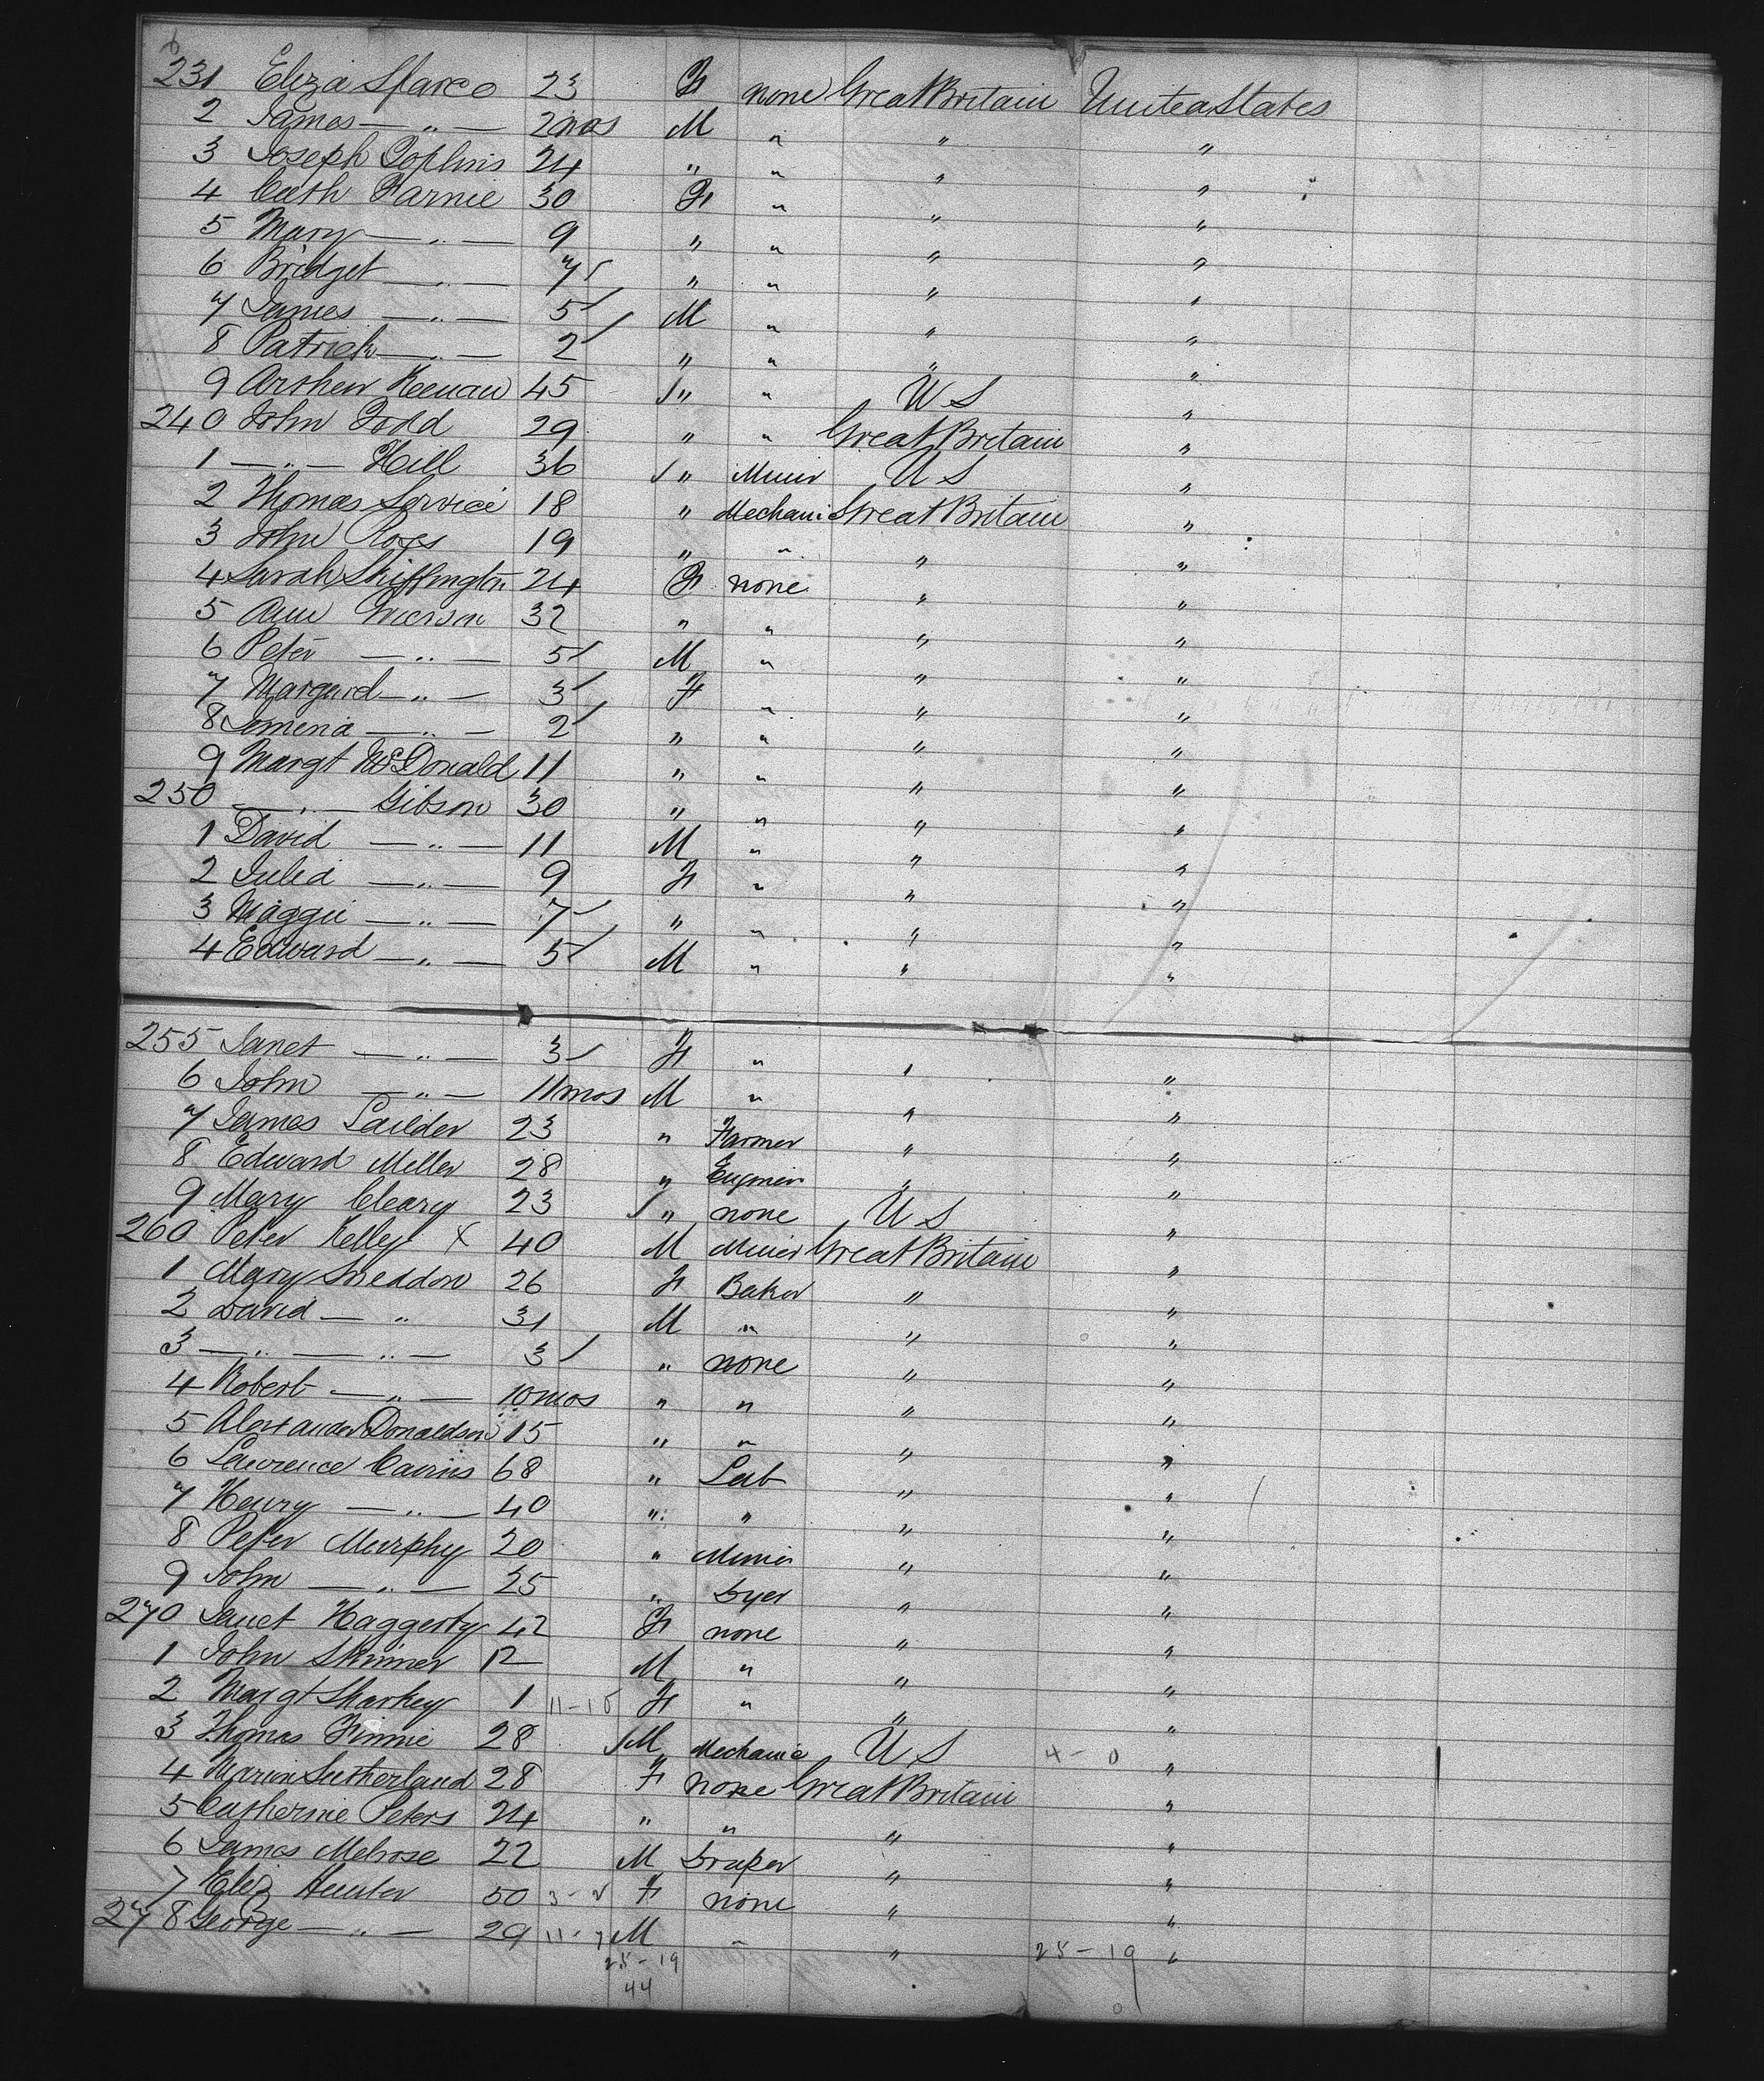 231 Eliza Sparco 23 F none Great Britain United States
2 James — " — 2 mos M " " "
3 Joseph Poplins 24 " " " "
4 Cath Farnie 30 F " " "
5 Mary — " — 9 " " " "
6 Bridget — " — 7 " " " "
7 James — " — 5 M " " "
8 Patrick — " — 2 " " " "
9 Arthur Keenan 45 " " U S "
240 John Todd 29 " " Great Britain "
1 — " — Hill 36 " Miner U S "
2 Thomas Service 18 " Mechanic Great Britain "
3 John Ross 19 " " " "
4 Sarah Skiffington 24 F none " "
5 Ann Grierson 32 " " " "
6 Peter — " — 5 M " " "
7 Margard — " — 3 F " " "
8 Jemena — " — 2 " " " "
9 Margt McDonald 11 " " " "
250 — " — Gibson 30 " " " "
1 David — " — 11 M " " "
2 Julia — " — 9 F " " "
3 Maggie — " — 7 " " " "
4 Edward — " — 5 M " " "
255 Janet — " — 3 F " " "
6 John — " — 11 mos M " " "
7 James 23 " Farmer " "
8 Edward Miller 28 " Engineer " "
9 Mary Cleary 23 " none U S "
260 Peter Kelley X 40 M Miner Great Britain "
1 Mary Sneddon 26 F Baker " "
2 David — " 31 M " " "
3 — " — " — 3 " none " "
4 Robert — " — 10 mos " " " "
5 Alexander Donaldson 15 " " " "
6 Lawrence Cairns 68 " Lab " "
7 Henry — " — 40 " " " "
8 Peter Murphy 20 " Miner " "
9 John — " — 25 " Dyer " "
270 Janet Haggerty 42 F none " "
1 John Skinner 12 M " " "
2 Margt Sharkey 1 11-15 F " " "
3 Thomas Finnie 28 M Mechanic U S 4-0 "
4 Marion Sutherland 28 F none Great Britain "
5 Catherine Peters 24 " " " "
6 James Melrose 22 M Draper " "
7 Eliz Hunter 50 3-2 F none " "
278 George — " — 29 11-7 M " " 25-19 "
25-19
44